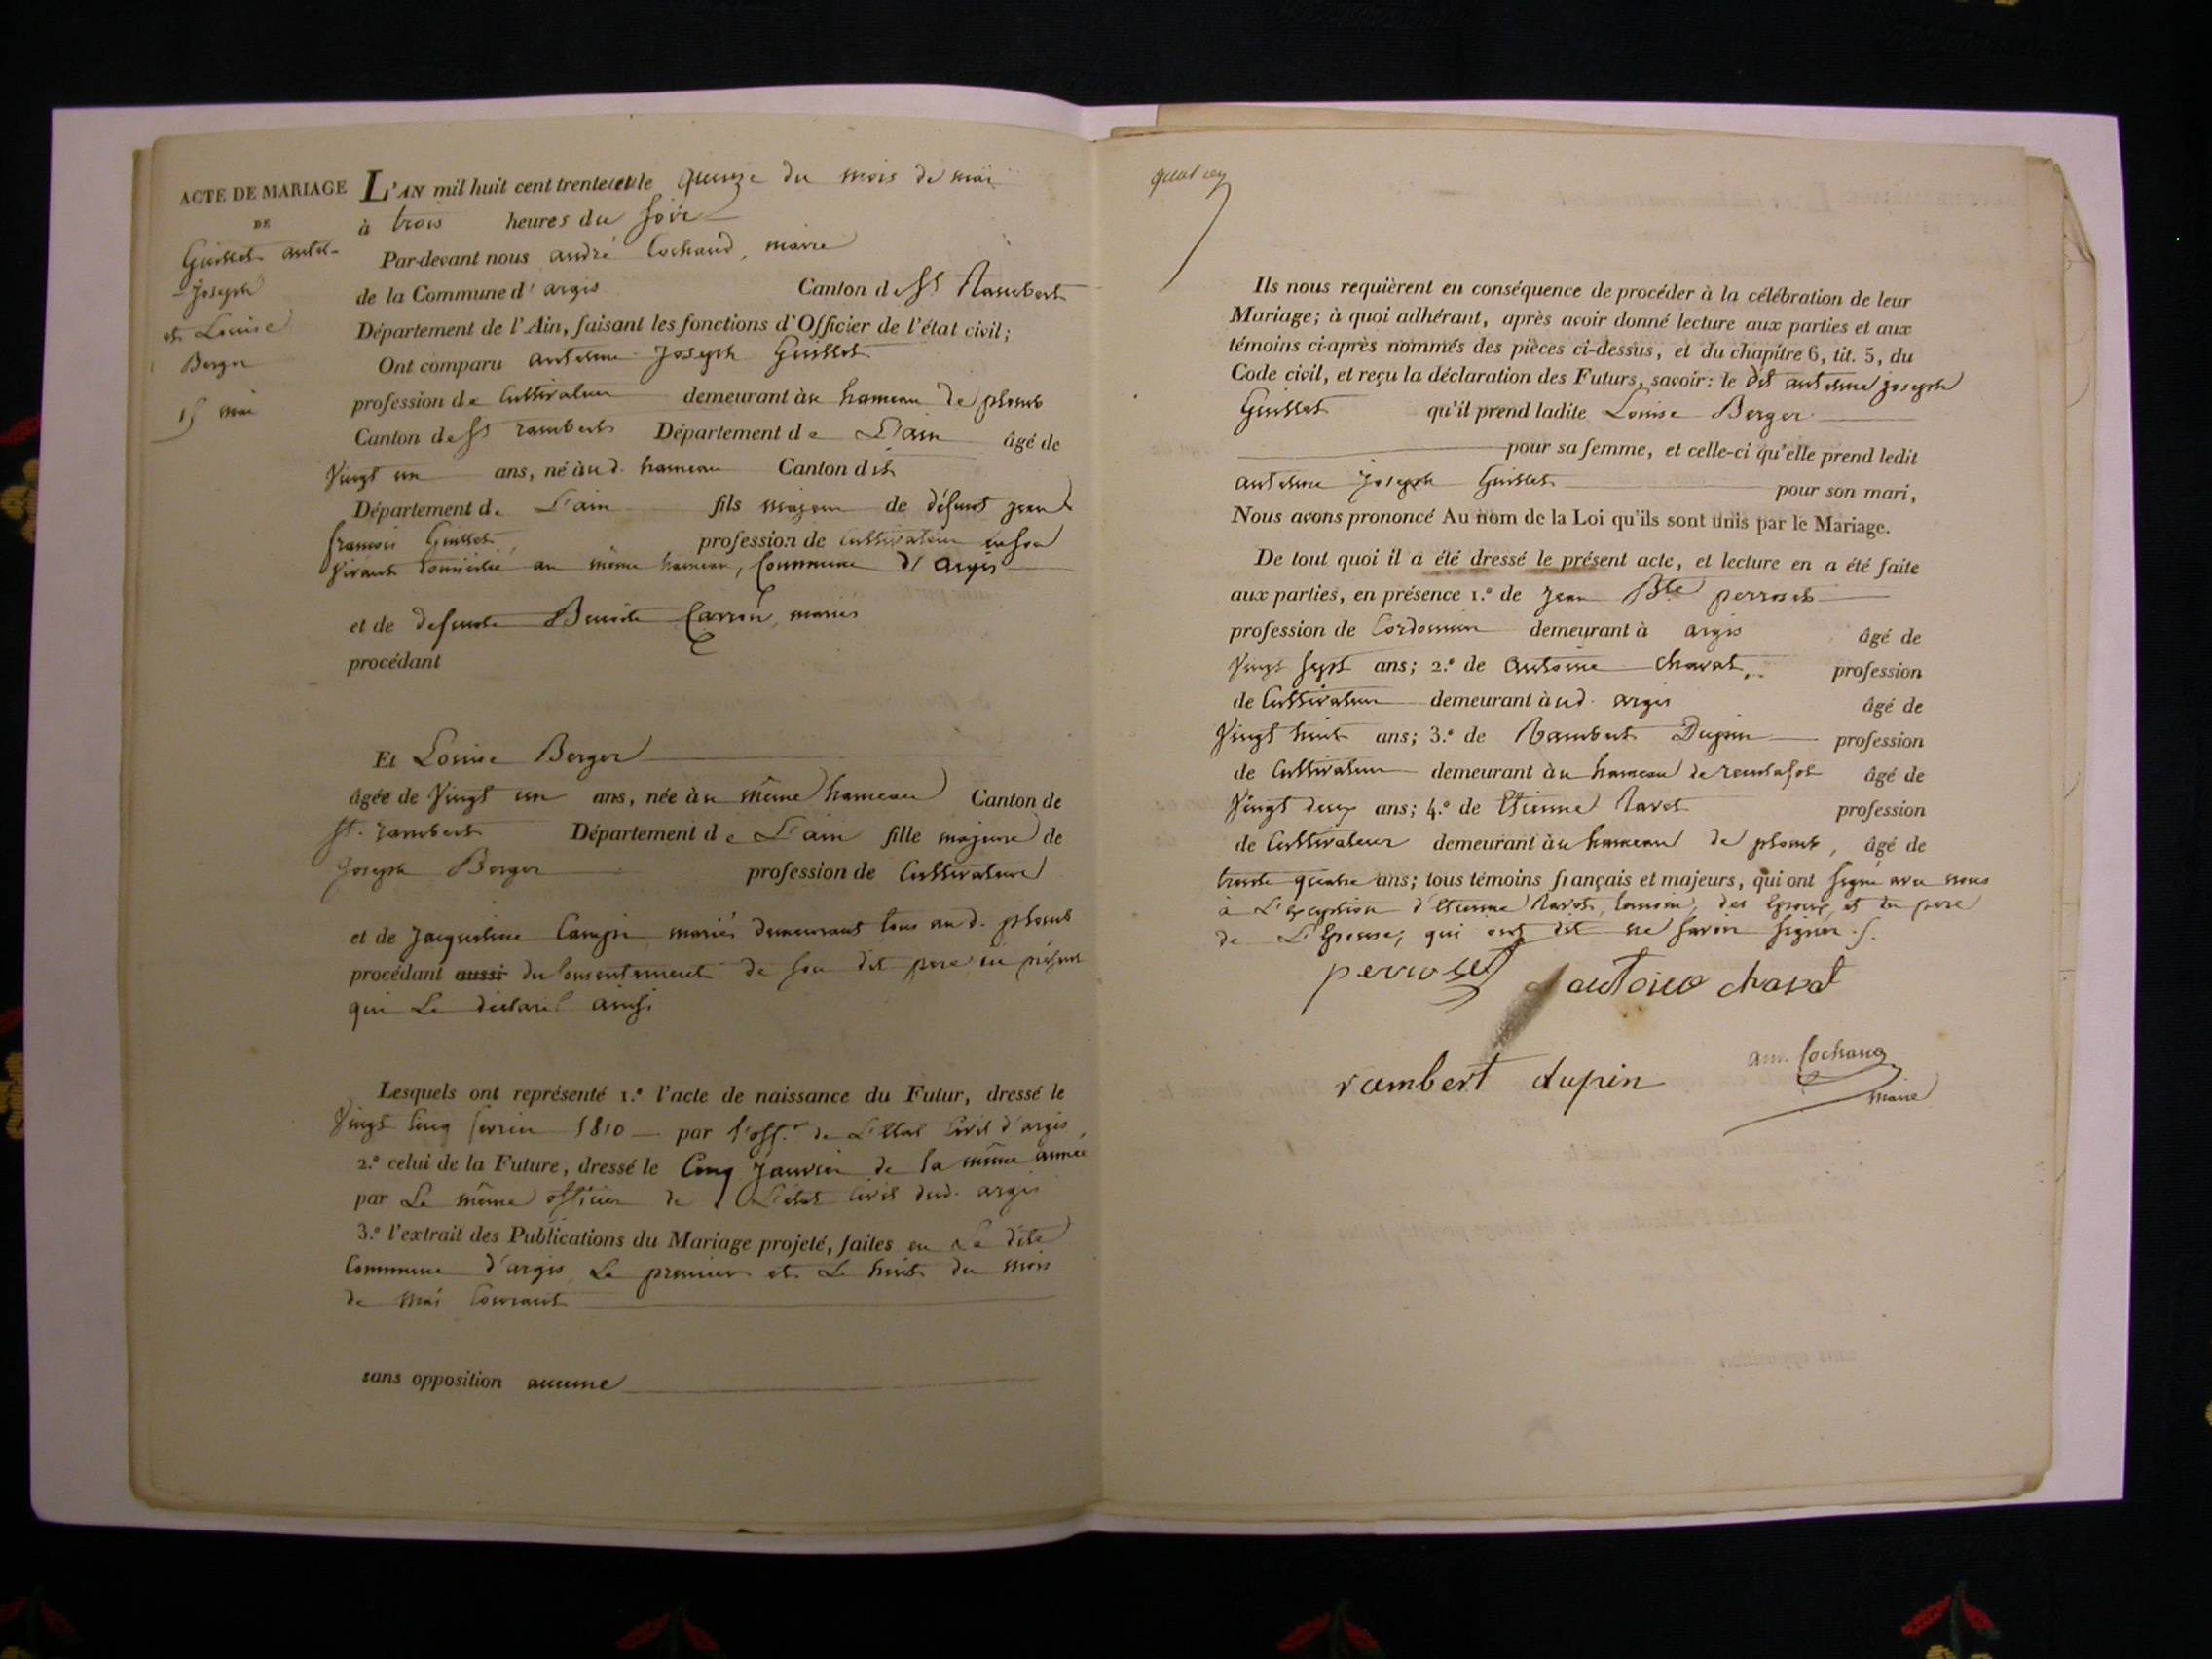 ACTE DE MARIAGE
DE
Guillet antel-
-Joseph
et Louise
Berger
15 mai
L'AN mil huit cent trente et le quinze du mois de mai
à trois heures du soir
Par-devant nous andré Cochaud, maire
de la Commune d'argis Canton de St Rambert
Département de l'Ain, faisant les fonctions d'Officier de l'état civil;
Ont comparu antelme Joseph Guillet
profession de Cultivateur demeurant àu hameau de plomb
Canton de St rambert Département de L'ain âgé de
Vingt un ans, né àud. hameau Canton dit
Département de L'ain fils majeur de défunt jean
francois Guillet profession de cultivateur en son
Vivant domicilié au même hameau, Commune d'argis
et de defunte Benoite Carron, mariés
procédant
Et Louise Berger
âgée de Vingt un ans, née àu même hameau Canton de
St. rambert Département de L'ain fille majeure de
Joseph Berger profession de Cultivateur
et de Jacqueline mariés demeurant tous aud. plomb
procédant aussi du Consentement de son dit pere ici présent
qui Le déclare ainsi
Lesquels ont représenté 1.º l'acte de naissance du Futur, dressé le
Vingt Cinq fevrier 1810 par l'off.er de L'Etat Civil d'argis,
2.º celui de la Future, dressé le Cinq Janvier de la même année
par Le même officier de L'état Civil dud. argis
3.º l'extrait des Publications du Mariage projeté, faites en La dite
Commune d'argis Le premier et Le huit du mois
de Mai Courant
sans opposition aucune
Ils nous requièrent en conséquence de procéder à la célébration de leur
Mariage; à quoi adhérant, après avoir donné lecture aux parties et aux
témoins ci-après nommés des pièces ci-dessus, et du chapitre 6, tit. 5, du
Code civil, et reçu la déclaration des Futurs, savoir: le dit antelme joseph
Guillet qu'il prend ladite Louise Berger
pour sa femme, et celle-ci qu'elle prend ledit
antelme Joseph Guillet pour son mari,
Nous avons prononcé Au nom de la Loi qu'ils sont unis par le Mariage.
De tout quoi il a été dressé le présent acte, et lecture en a été faite
aux parties, en présence 1.º de Jean Bte perroset
profession de Cordonnier demeurant à argis âgé de
Vingt Sept ans; 2.º de Antoine Chavat, profession
de Cultivateur demeurant àud. argis âgé de
Vingt huit ans; 3.º de Rambert Dupin profession
de Cultivateur demeurant àu hameau de âgé de
Vingt deux ans; 4.º de Etienne Ravet profession
de Cultivateur demeurant àu hameau de plomb, âgé de
trente quatre ans; tous témoins français et majeurs, qui ont signé avec nous
à L'exception d'Etienne Ravet, temoin, des Epoux, et du pere
de L'Epouse, qui ont dit ne Savoir Signer.
perroset antoine chavat
rambert dupin Cochaud
maire